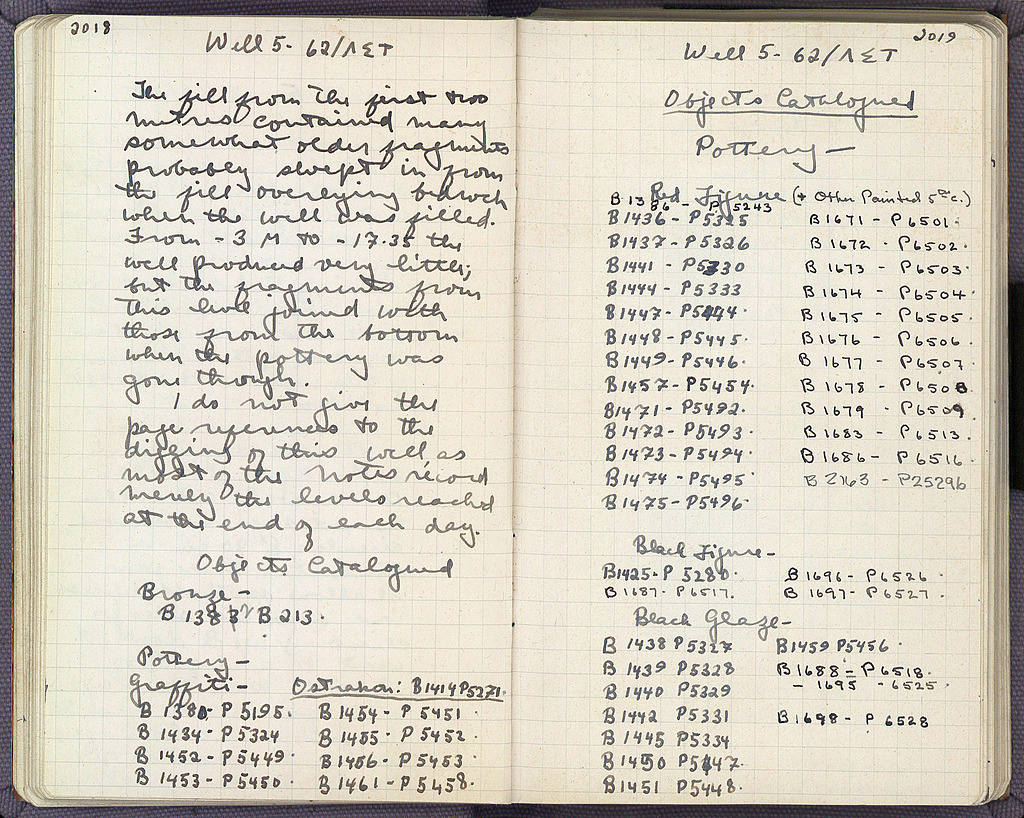 2018
Well 5 - 62/ΛΣΤ
The fill from the first two
metres contained many
somewhat older fragments
probably swept in from
the fill overlying bedrock
when the well was filled.
From - 3 M to - 17.35 the
well produced very little;
but the fragments from
this level joined with
those from the bottom
when the pottery was
gone through.
I do not give the
page references to the
digging of this well as
most of the notes record
merely the levels reached
at the end of each day.
Objects Catalogued
Bronze -
B 213.
Pottery -
Graffiti - Ostrakon: B1414 P5271.
B 1380 - P 5195. B 1454 - P 5451.
B 1434 - P 5324 B 1455 - P 5452.
B 1452 - P 5449. B 1456 - P 5453
B 1453 - P 5450. B 1461 - P 5458.
2019
Well 5 - 62/ΛΣΤ
Objects Catalogued
Pottery -
Red Figure (+ Other Painted 5th c.)
B 1386 - P 5243
B 1436 - P 5325 B 1671 - P 6501.
B 1437 - P 5326 B 1672 - P 6502.
B 1441 - P 5330 B 1673 - P 6503.
B 1444 - P 5333 B 1674 - P 6504.
B 1447 - P 5444. B 1675 - P 6505.
B 1448 - P 5445. B 1676 - P 6506.
B 1449 - P 5446. B 1677 - P 6507.
B 1457 - P 5454. B 1678 - P 6508
B 1471 - P 5492. B 1679 - P 6509
B 1472 - P 5493. B 1683 - P 6513.
B 1473 - P 5494. B 1686 - P 6516.
B 1474 - P 5495 B 2163 - P 25296
B 1475 - P 5496.
Black Figure -
B 1425 - P 5280. B 1696 - P 6526.
B 1687 - P 6517. B 1697 - P 6527.
Black Glaze -
B 1438 P 5327 B 1459 P 5456.
B 1439 P 5328 B 1688 = P 6518.
- 1695 - 6525.
B 1440 P 5329
B 1442 P 5331 B 1698 - P 6528
B 1445 P 5334
B 1450 P 5447.
B 1451 P 5448.